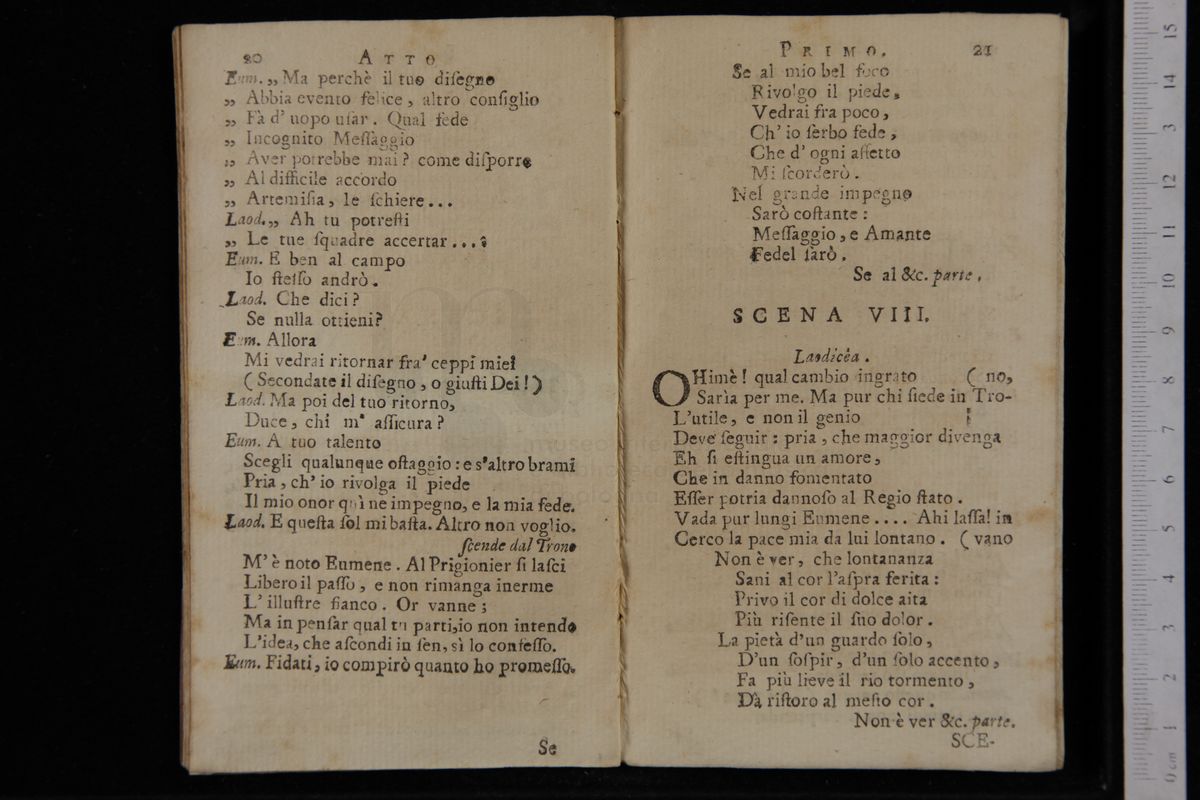 20 ATTO
Eum. „ Ma perchè il tuo diſegno
„ Abbia evento felice, altro conſiglio
„ Fà d' uopo uſar. Qual fede
„ Incognito Meſſaggio
„ Aver potrebbe mai? come diſporre
„ Al difficile accordo
„ Artemiſia, le ſchiere...
Laod. „ Ah tu potreſti
„ Le tue ſquadre accertar...
Eum. E ben al campo
Io ſteſſo andrò.
Laod. Che dici?
Se nulla ottieni?
Eum. Allora
Mi vedrai ritornar fra' ceppi miei
( Secondate il diſegno, o giuſti Dei! )
Laod. Ma poi del tuo ritorno,
Duce, chi m' aſſicura?
Eum. A tuo talento
Scegli qualunque oſtaggio: e s'altro brami
Pria, ch' io rivolga il piede
Il mio onor quì ne impegno, e la mia fede.
Laod. E queſta ſol mi baſta. Altro non voglio.
ſcende dal Trono
M' è noto Eumene. Al Prigionier ſi laſci
Libero il paſſo, e non rimanga inerme
L' illuſtre fianco. Or vanne;
Ma in penſar qual tu parti, io non intendo
L'idea, che aſcondi in ſen, sì lo confeſſo.
Eum. Fidati, io compirò quanto ho promeſſo.
Se
PRIMO. 21
Se al mio bel foco
Rivolgo il piede,
Vedrai fra poco,
Ch' io ſerbo fede,
Che d' ogni affetto
Mi ſcorderò.
Nel grande impegno
Sarò coſtante:
Meſſaggio, e Amante
Fedel ſarò.
Se al &c. parte.
SCENA VIII.
Laodicèa.
OHimè! qual cambio ingrato ( no,
Sarìa per me. Ma pur chi ſiede in Tro-
L'utile, e non il genio
Deve ſeguir: pria, che maggior divenga
Eh ſi eſtingua un amore,
Che in danno fomentato
Eſſer potria dannoſo al Regio ſtato.
Vada pur lungi Eumene.... Ahi laſſa! in
Cerco la pace mia da lui lontano. ( vano
Non è ver, che lontananza
Sani al cor l'aſpra ferita:
Privo il cor di dolce aita
Più riſente il ſuo dolor.
La pietà d'un guardo ſolo,
D'un ſoſpir, d'un ſolo accento,
Fa più lieve il rio tormento,
Dà riſtoro al meſto cor.
Non è ver &c. parte.
SCE-